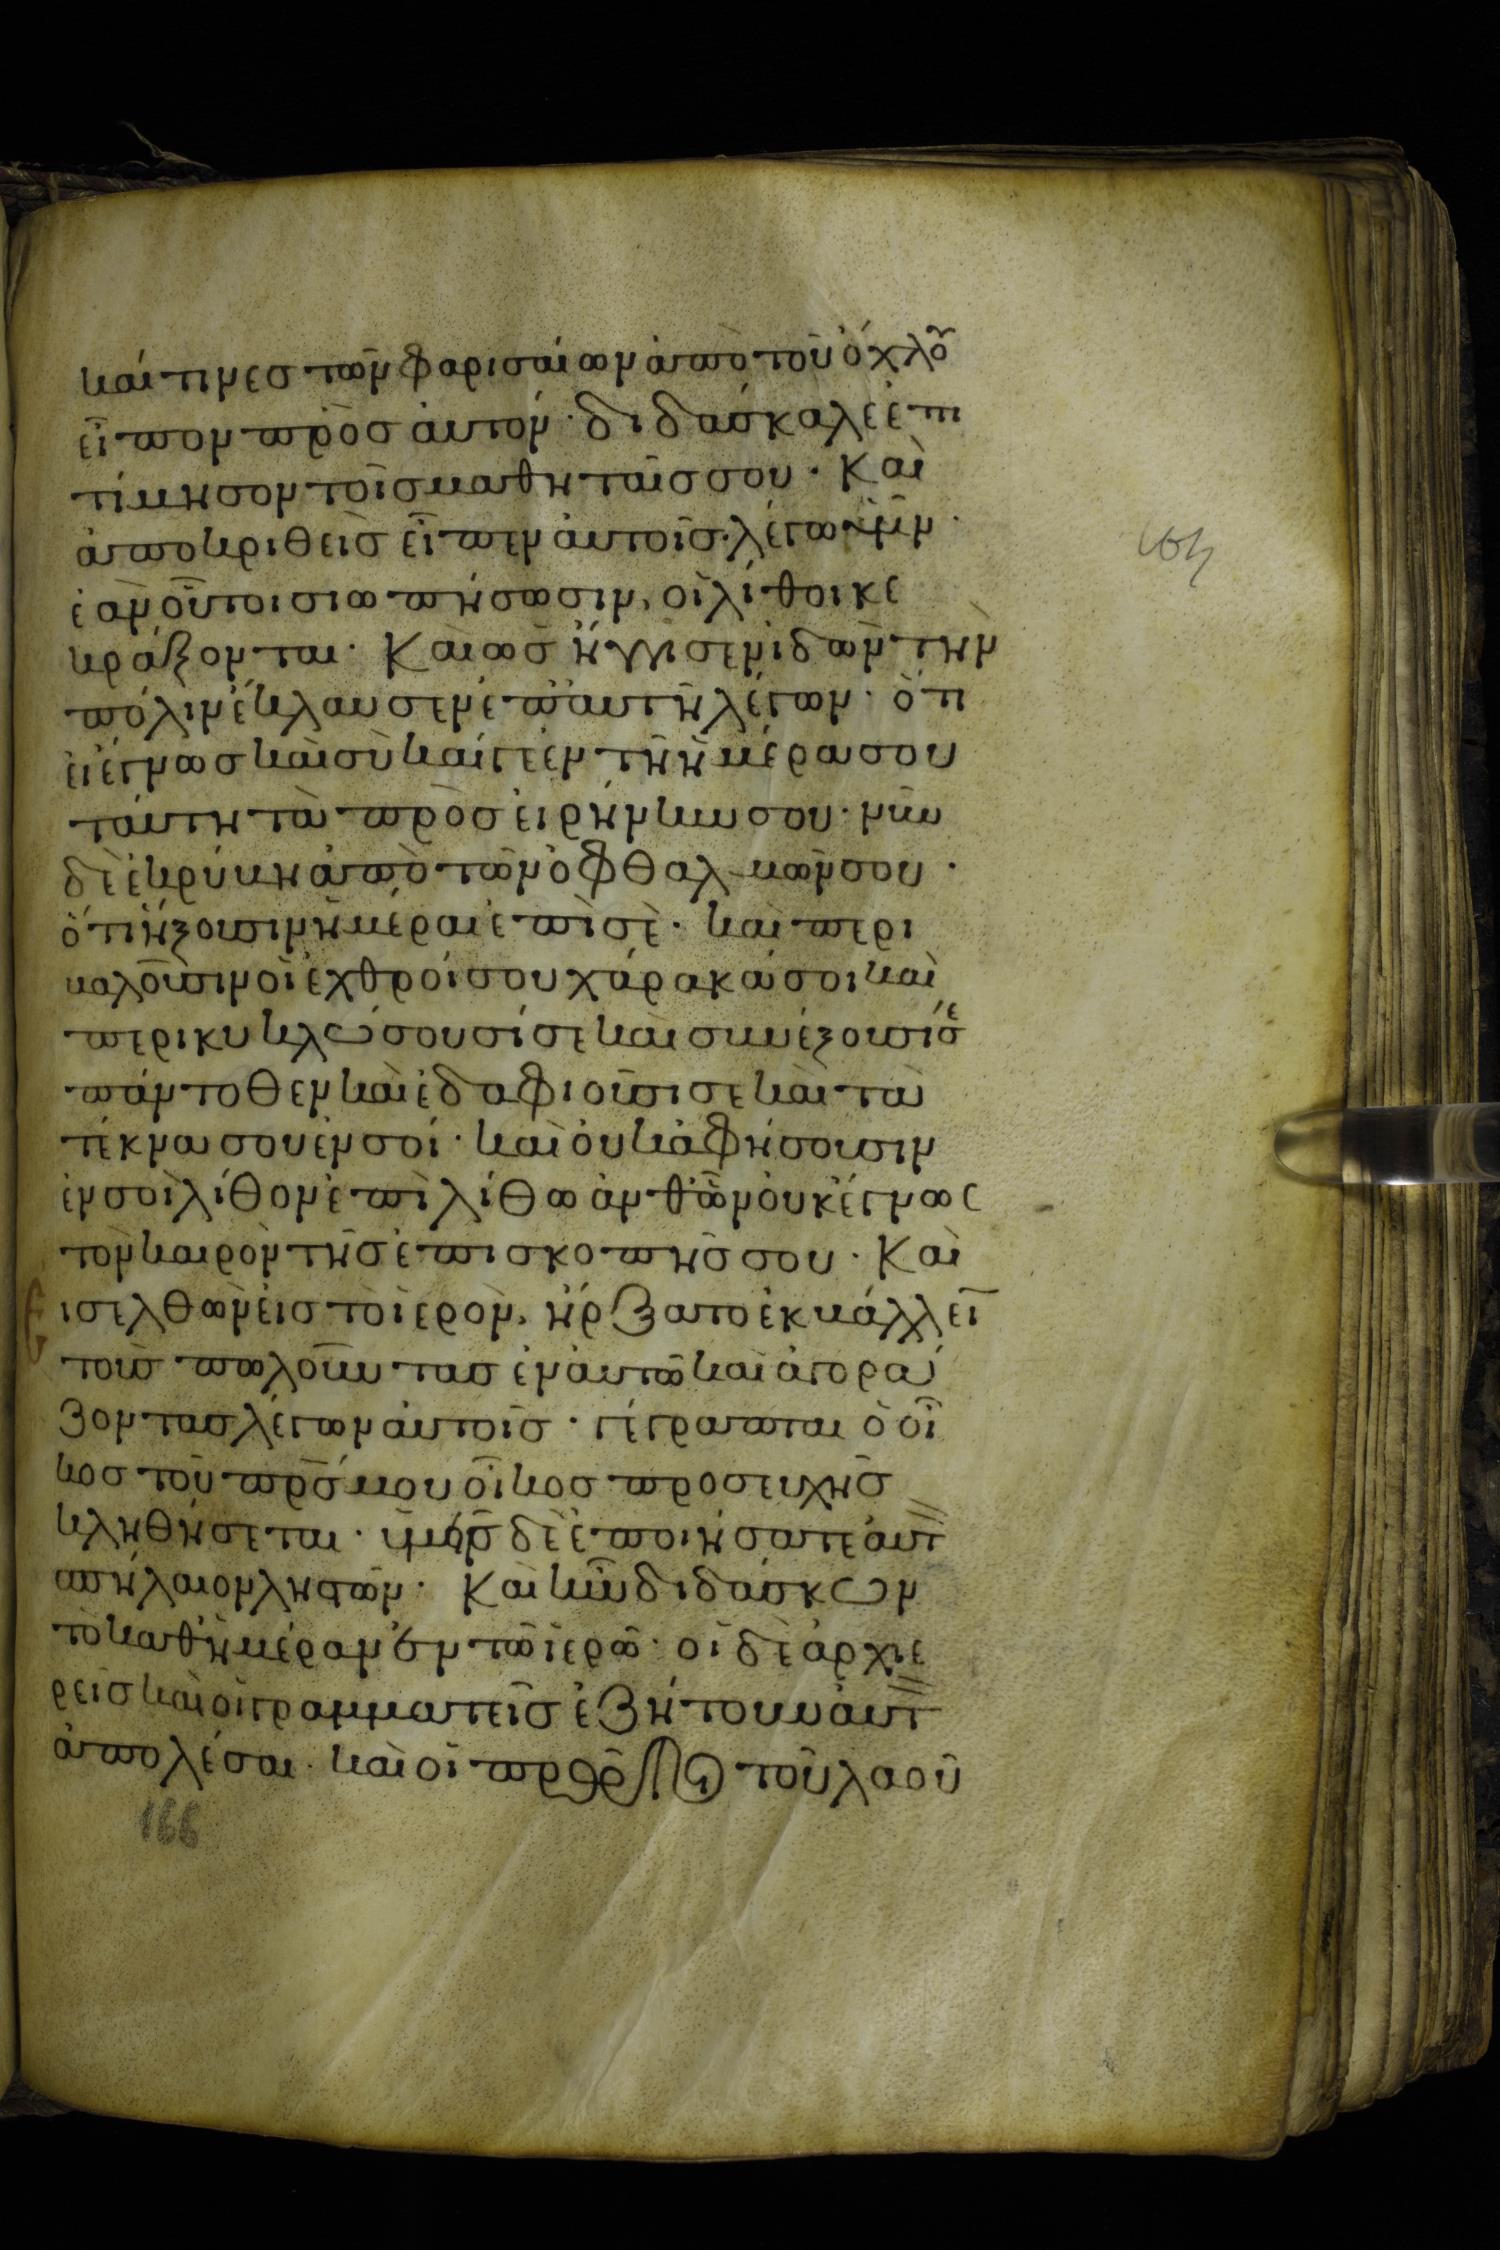 καί τινες τῶν φαρισαίων ἀπὸ τοῦ ὄχλου
εἶπον πρὸς αὐτόν · διδάσκαλε ἐπι
τίμησον τοῖς μαθηταῖς σου · Καὶ
ἀποκριθεὶς εἶπεν αὐτοῖς · λέγω ὑμῖν ·
ἐὰν οὗτοι σιωπήσωσιν, οἱ λίθοι κε
κράξονται · Καὶ ὡς ἤγγισεν ἰδὼν τὴν
πόλιν ἔκλαυσεν ἐπ' αὐτῆ λέγων · ὅτι
εἰ ἔγνως καὶ σὺ καί γε ἐν τῆ ἡμέρα σου
ταύτη τὰ πρὸς εἰρήνην σου · νῦν
δὲ ἐκρύβη ἀπὸ τῶν ὀφθαλμῶν σου ·
ὅτι ἥξουσιν ἡμέραι ἐπὶ σὲ · καὶ περι
βαλοῦσιν οἱ ἐχθροί σου χάρακά σοι καὶ
περικυκλώσουσί σε καὶ συνέξουσί σε
πάντοθεν καὶ ἐδαφιοῦσι σε καὶ τὰ
τέκνα σου ἐν σοί · καὶ οὐκ ἀφήσουσιν
ἐν σοὶ λίθον ἐπὶ λίθω ἀνθ' ὧν οὐκ ἔγνως
τὸν καιρὸν τῆς ἐπισκοπῆς σου · Καὶ
ισελθὼν εἰς τὸ ἱερὸν, ἤρξατο ἐκβάλλειν
τοὺς πωλοῦντας ἐν αὐτῶ καὶ ἀγορά
ζοντας λέγων αὐτοῖς · γέγραπται ὁ οἶ
κος τοῦ πρσ μου οἶκος προσευχῆς
κληθήσεται · ὑμεῖς δὲ ἐποιήσατε αὐτ
σπήλαιον ληστῶν · Καὶ ἦν διδάσκων
τὸ καθ' ἡμέραν ἐν τῶ ἱερῶ · οἱ δὲ ἀρχιε
ρεῖς καὶ οἱ γραμματεῖς ἐζήτουν αὐτ
ἀπολέσαι · καὶ οἱ πρῶτοι τοῦ λαοῦ
166